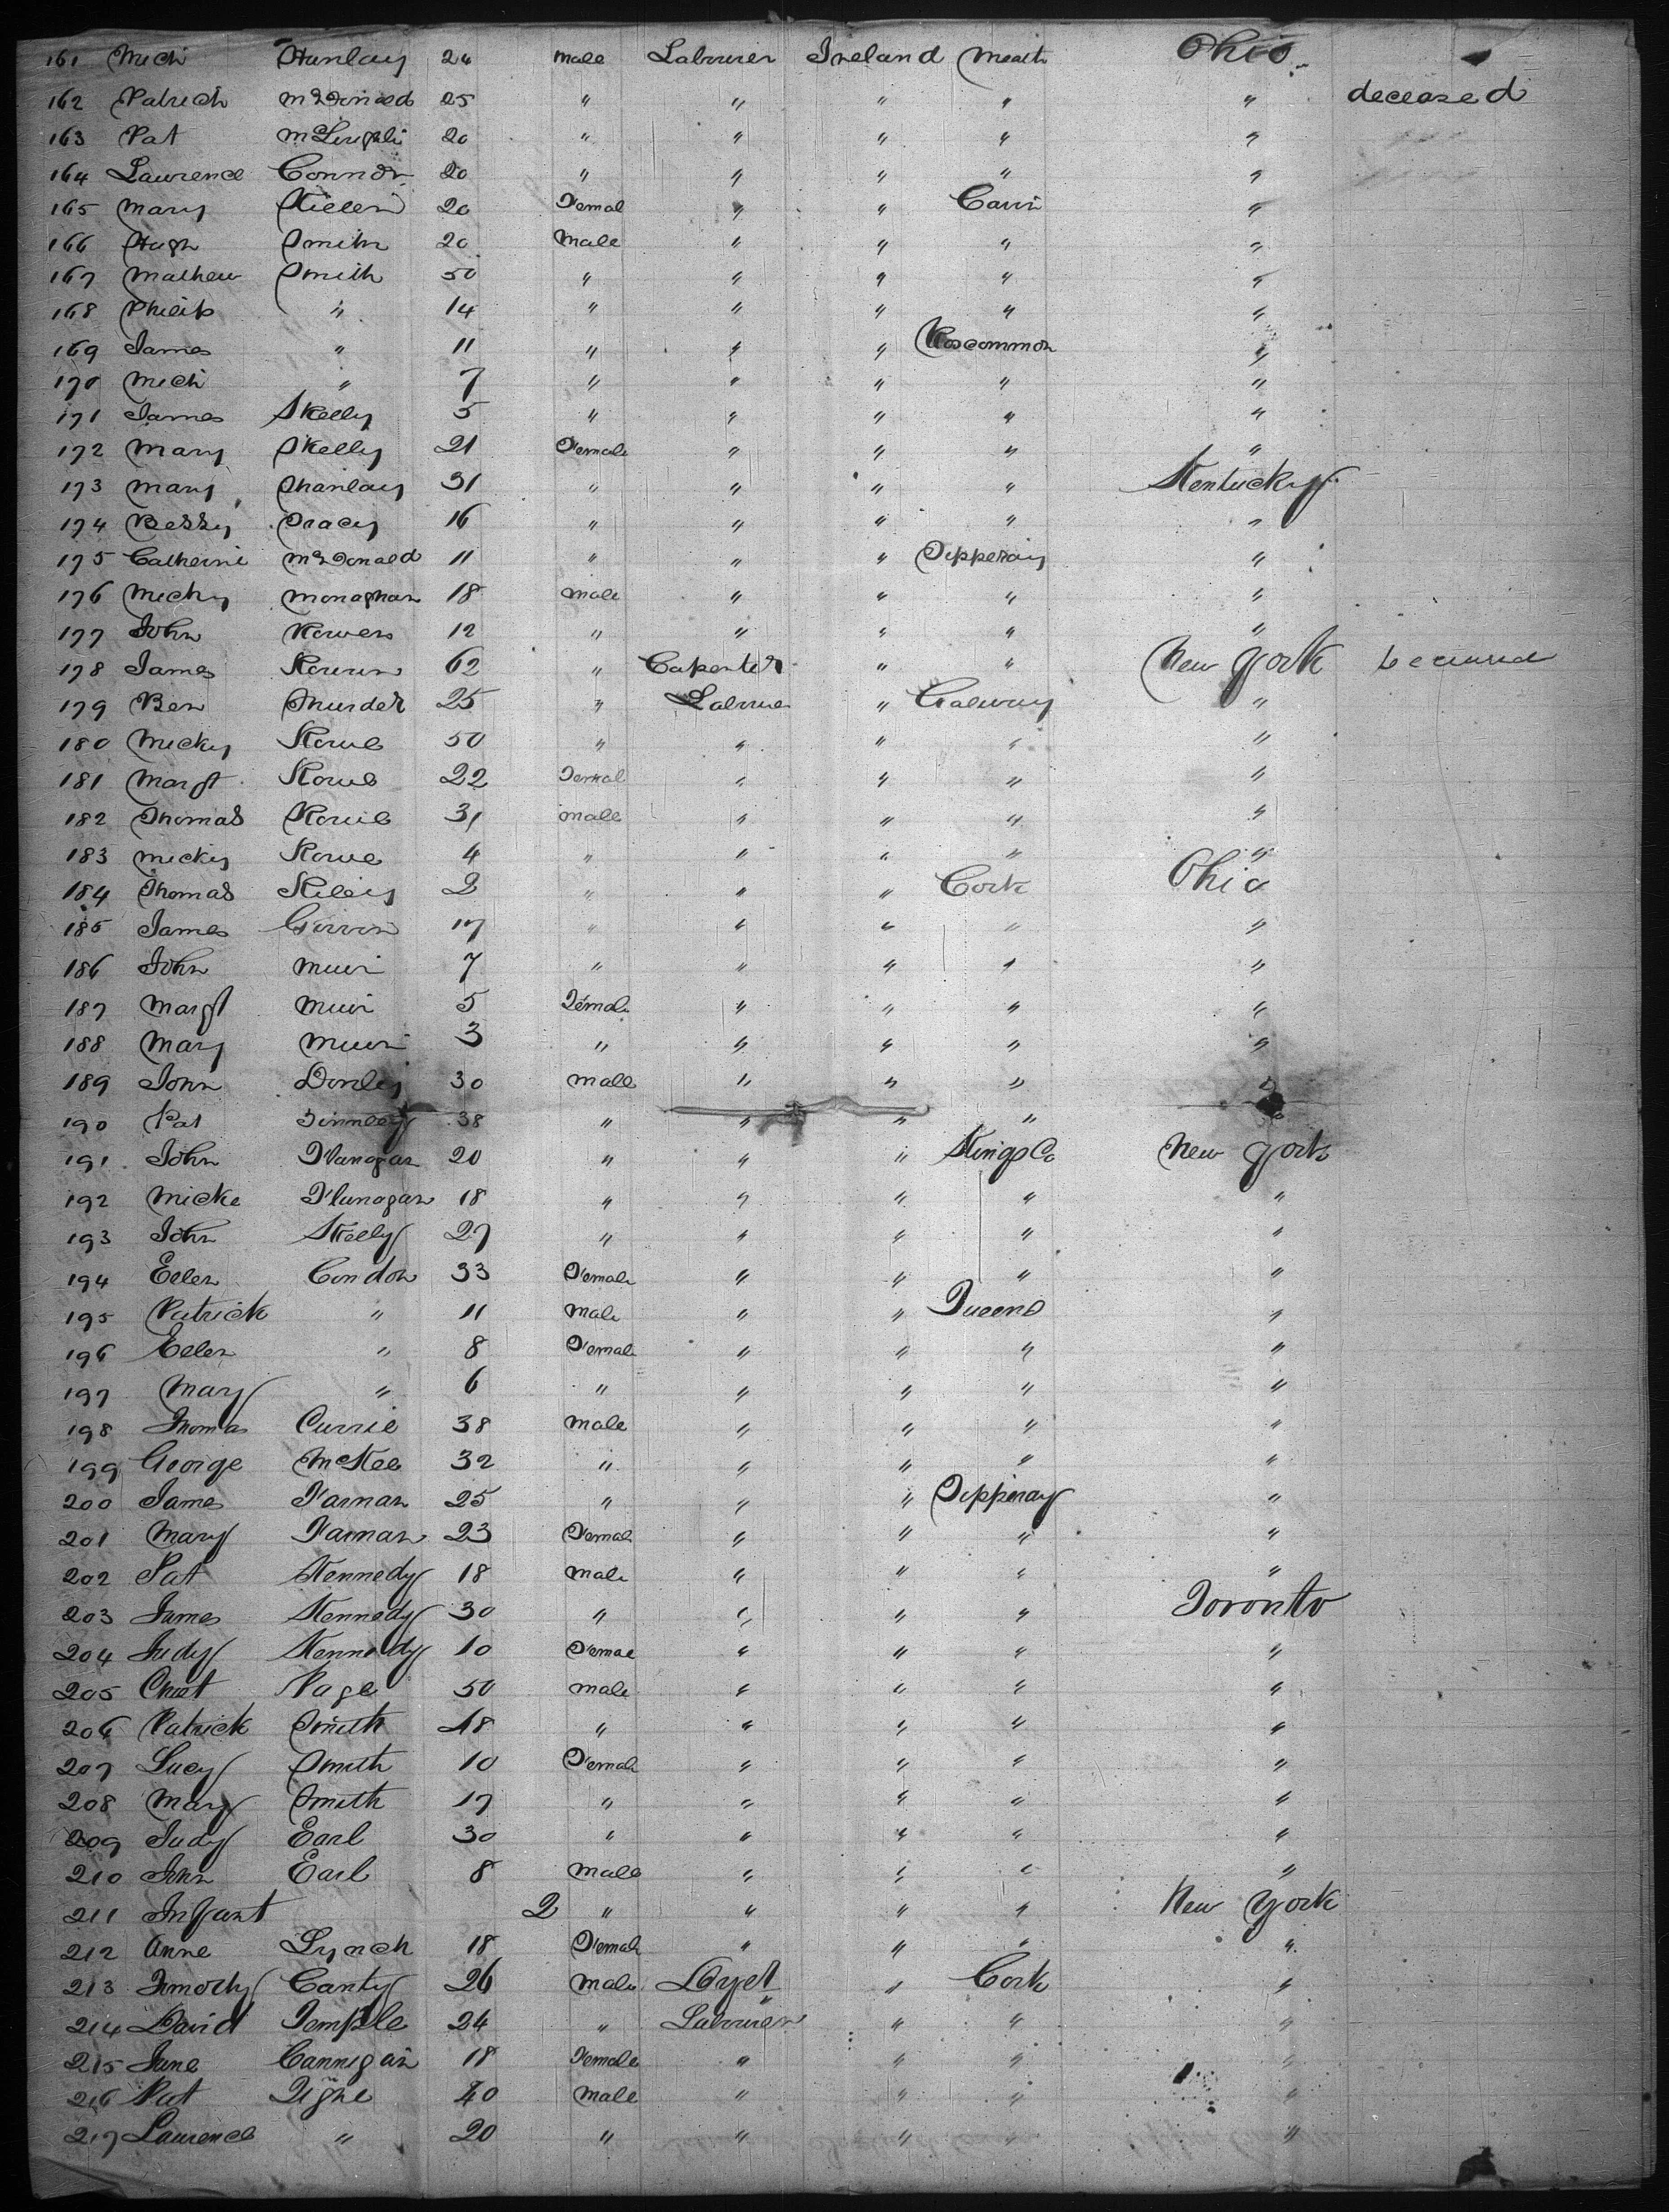 161 Mich Hunlay 24 male Labourer Ireland Meath Ohio
162 Patrich McDonald 25 " " " " " deceased
163 Pat 20 " " " " "
164 Laurence Connor 20 " " " " "
165 Mary 20 Femal " " Cavn "
166 Hugh Smith 20 Male " " " "
167 Mathew Smith 50 " " " " "
168 Philip " 14 " " " " "
169 James " 11 " " " Roscommon "
170 Mich " 7 " " " " "
171 James Skelly 5 " " " " "
172 Mary Skelly 21 Female " " " "
173 Mary Shanlay 31 " " " " Kentucky
174 Bessy Tracey 16 " " " " "
175 Catherine McDonald 11 " " " Tipperay "
176 Micky Monaghan 18 male " " " "
177 John Rowen 12 " " " " "
178 James 62 " Capenter " " New York
179 Ben Thunder 25 " Laboure " Galway "
180 Micky Rowe 50 " " " " "
181 Margt Rowe 22 Femal " " " "
182 Thomas Rowe 31 male " " " "
183 Micky Rowe 4 " " " " "
184 Thomas Riley 2 " " " Cork Ohio
185 James 17 " " " " "
186 John Muir 7 " " " " "
187 Margt Muir 5 Female " " " "
188 Mary Muir 3 " " " " "
189 John Donley 30 male " " " "
190 Pat 38 " " " " "
191 John Flanagan 20 " " " Kings Co New York
192 Micke Flanagan 18 " " " " "
193 John Kelly 27 " " " " "
194 Ellen Condon 33 Female " " " "
195 Patrick " 11 Male " " Queens "
196 Ellen " 8 Female " " " "
197 Mary " 6 " " " " "
198 Thomas Currie 38 Male " " " "
199 George McKee 32 " " " " "
200 James Farnan 25 " " " Tipperay "
201 Mary Farnan 23 Femal " " " "
202 Pat Kennedy 18 Male " " " "
203 James Kennedy 30 " " " " Toronto
204 Judy Kennedy 10 Femal " " " "
205 Page 50 Male " " " "
206 Patrick Smith 48 " " " " "
207 Lucy Smith 10 Female " " " "
208 Mary Smith 17 " " " " "
209 Judy Earl 30 " " " " "
210 John Earl 8 Male " " " "
211 Infant 2 " " " " New York
212 Anne Lynch 18 Female " " " "
213 Timothy Canty 26 Male " Cork "
214 David Temple 24 " Labourer " " "
215 Jane Cannigan 18 Female " " " "
216 Pat Tighe 40 Male " " " "
217 Laurence " 20 " " " " "